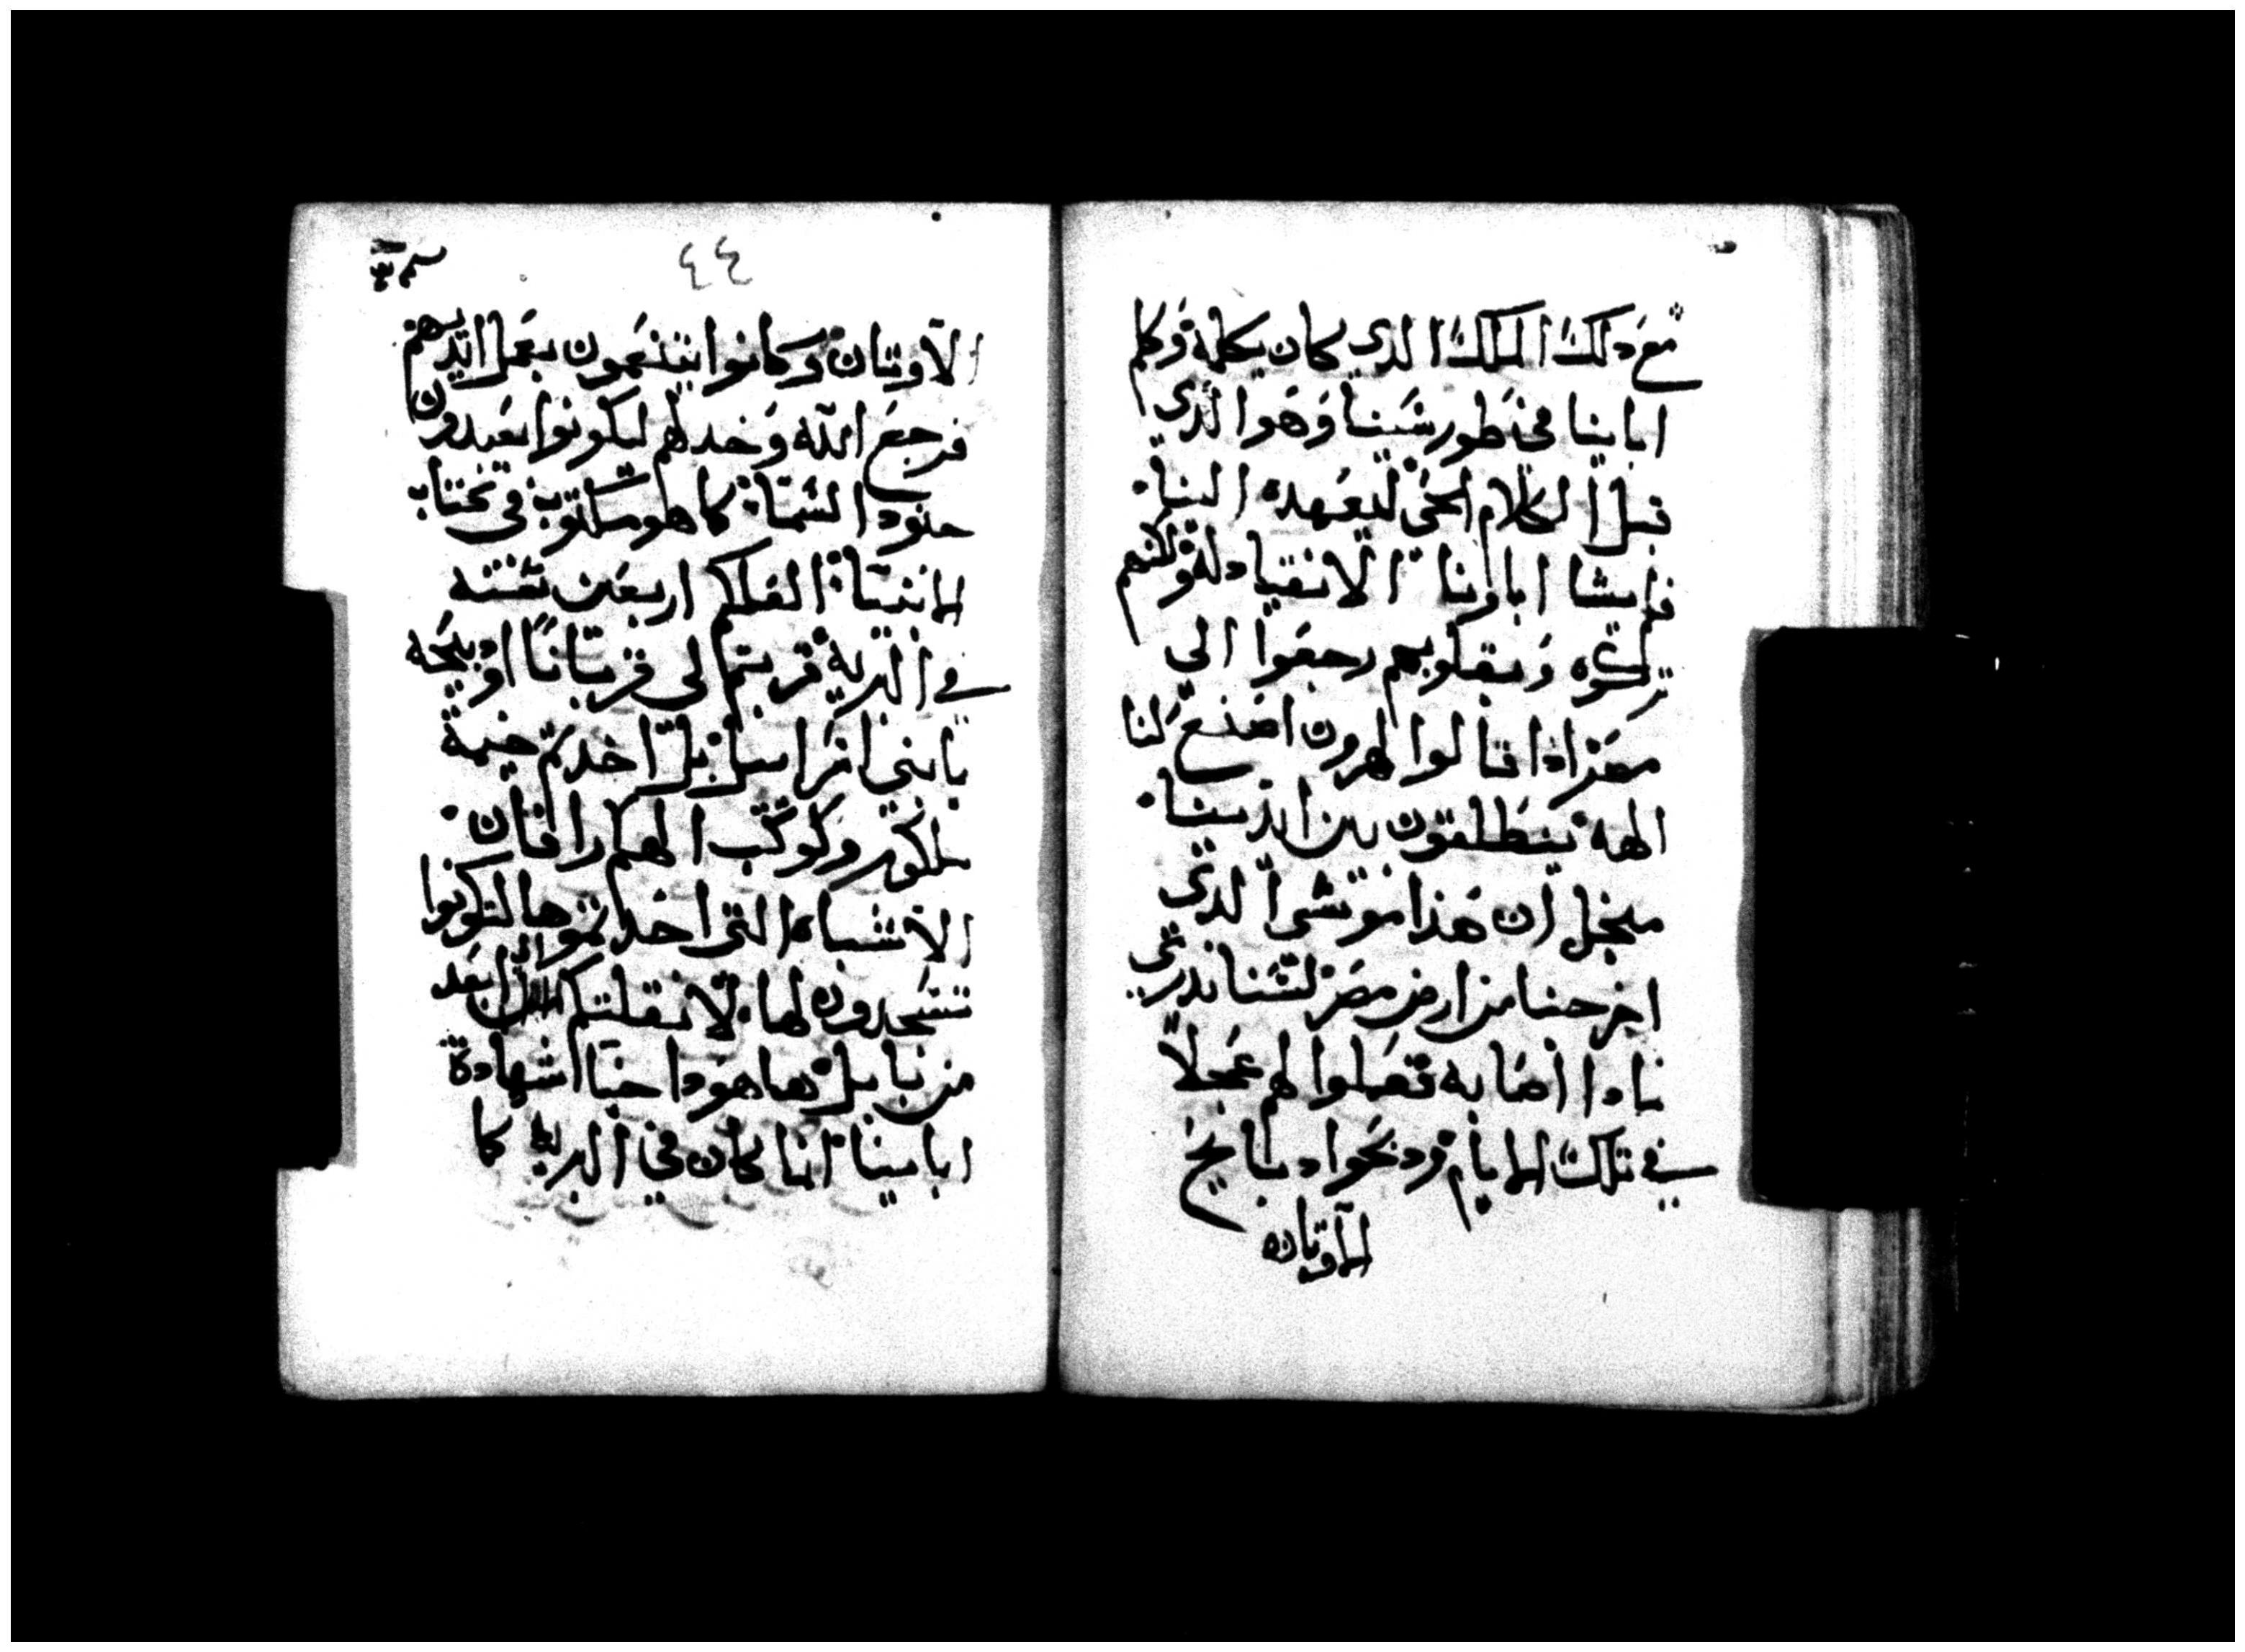 مع دلك الملك الدي كان يكلمه وكلم
اباينا في طور سينا وهوا لدي
قبل الكلام الحي ليعهده الينا.
فلم يشا اباونا الانقياد له ولكنهم
تركوه وبقلوبهم رجعوا الي
مصر اذ اقالوا لهرون اصنع لنا
الهه ينطلقون بين ايدينا.
من اجل ان هذا موسى الدي
اخرجنا من ارض مصر لسنا ندري
مادا اصابه فعملوا لهم عجلا
في تلك الايام ودبحوا دبايح
الاوتان
٤٤
الاوتان وكانوا يتنعمون بعمل ايديهم
فرجع الله وخدلهم ليكونوا يعبدون
جنود السما كما هو مكتوب في كتاب
الانبيا العلكم اربعين سنه
في البريه قربتم لي قربانا او دبيحه
يابني اسراييل بل اخدتم خيمة
ملكوم وكوكب الهكم رافان.
الاشباه التي اخدتموها لتكونوا
تسجدون لها. لانقلتكم الى ابعد
من بابل هاهودا خبا شهادة
اباينا انما كان في البريه كما